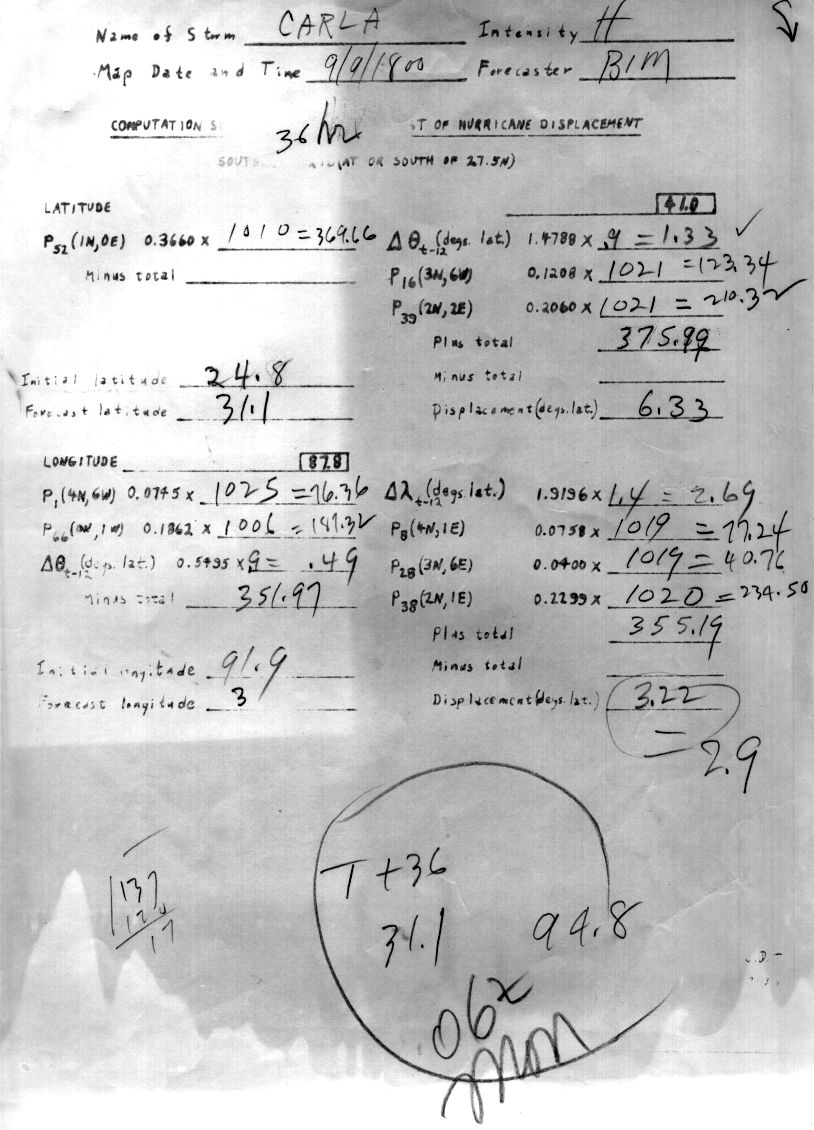 Name of Storm CARLA Intensity H
Map Date and Time 9/9/1800 Forecaster BIM
COMPUTATION S 36 hr ST OF HURRICANE DISPLACEMENT
SOUT (AT OR SOUTH OF 27.5N)
LATITUDE 41.0
P52 (1N, 0E) 0.3660 x 1010 = 369.66 Δθt-12 (degs. lat.) 1.4788 x .9 = 1.33 ✓
Minus total P16 (3N, 6W) 0.1208 x 1021 = 123.34
P39 (2N, 2E) 0.2060 x 1021 = 210.32 ✓
Plus total 375.99
Initial latitude 24.8 Minus total
Forecast latitude 31.1 Displacement (degs. lat.) 6.33
LONGITUDE 87.8
P1 (4N, 6W) 0.0745 x 1025 = 76.36 Δλt-12 (degs. lat.) 1.9196 x 1.4 = 2.69
P66 (0N, 1W) 0.1862 x 1006 = 187.32 P8 (4N, 1E) 0.0758 x 1019 = 77.24
Δθt-12 (degs. lat.) 0.5495 x .9 = .49 P28 (3N, 6E) 0.0400 x 1019 = 40.76
Minus total 351.97 P38 (2N, 1E) 0.2299 x 1020 = 234.50
Plus total 355.19
Initial longitude 91.9 Minus total
Forecast longitude 3 Displacement (degs. lat.) 3.22
= 2.9
T + 36
137
17
31.1 94.8
06z
mon